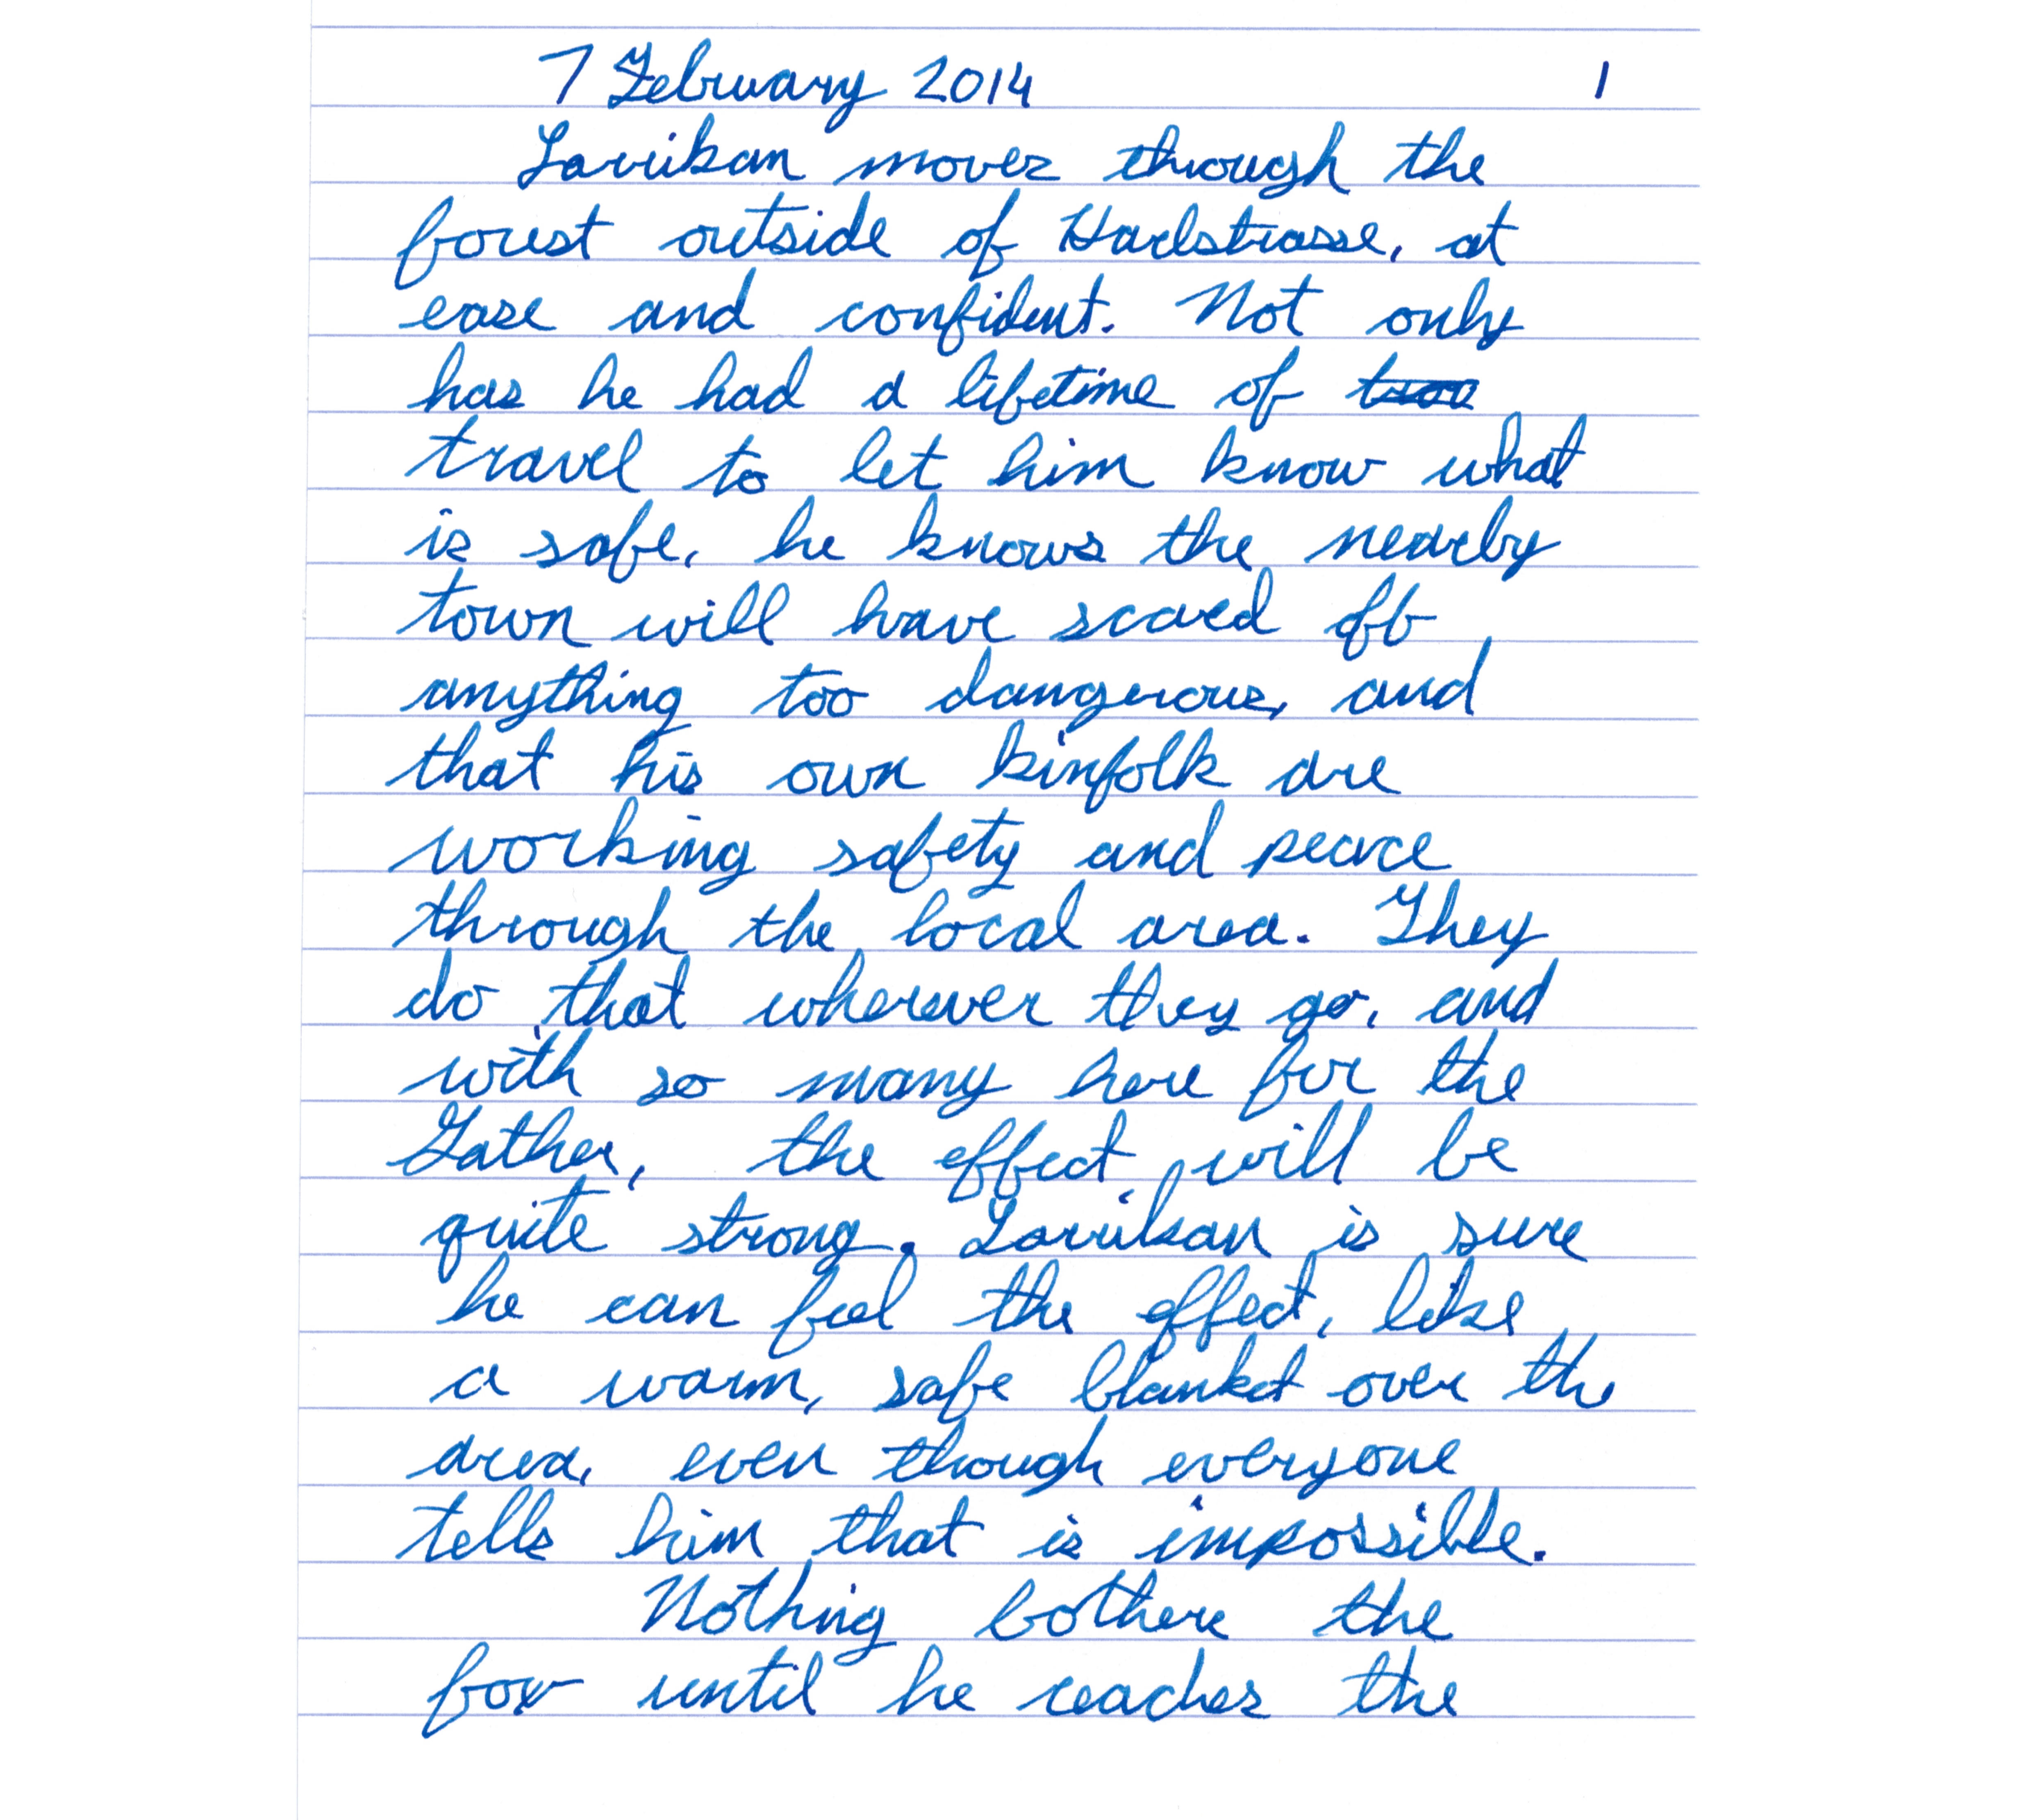 7 February 2014 1
Larrikan moves through the
forest outside of Harlstrasse, at
ease and confident. Not only
has he had a lifetime of
travel to let him know what
is safe, he knows the nearby
town will have scared off
anything too dangerous, and
that his own kinfolk are
working safety and peace
through the local area. They
do that wherever they go, and
with so many here for the
Gather, the effect will be
quite strong. Larrikan is sure
he can feel the effect, like
a warm, safe blanket over the
area, even though everyone
tells him that is impossible.
Nothing bothers the
fox until he reaches the